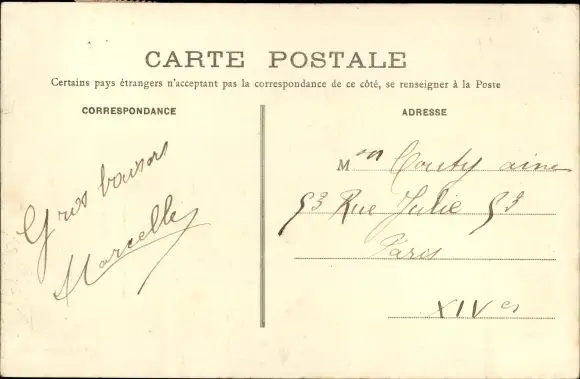 CARTE POSTALE
Certains pays étrangers n'acceptant pas la correspondance de ce côté, se renseigner à la Poste
CORRESPONDANCE
Gros baisers
Marcelle
ADRESSE
Mon Couty ainé
53 Rue Julie 53
Paris
XIVes